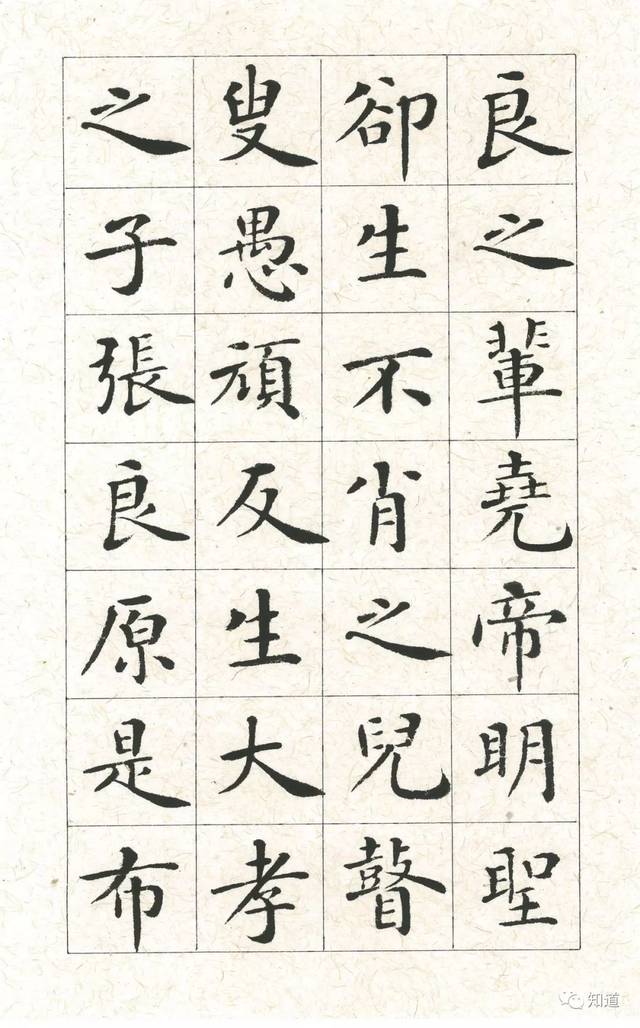 良之輩堯帝明聖
卻生不肖之兒瞽
叟愚頑反生大孝
之子張良原是布
知道